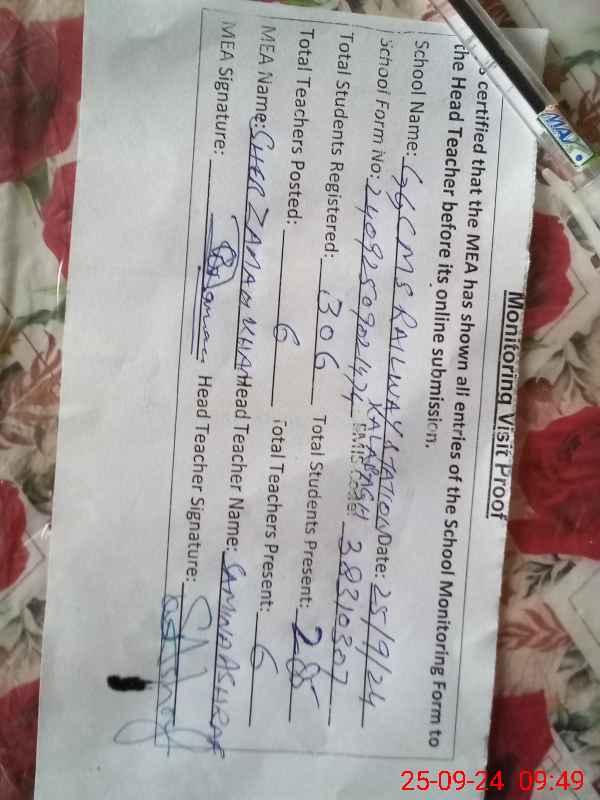 Monitoring Visit Proof
s certified that the MEA has shown all entries of the School Monitoring Form to
the Head Teacher before its online submission.
School Name: GGCMS RAILWAY STATION Date: 25/9/24
KALABAGH
School Form No: 24092509021474 EMIS Code: 38310307
Total Students Registered: 306 Total Students Present: 285
Total Teachers Posted: 6 Total Teachers Present: 6
MEA Name: SHER ZAMAN KHAN Head Teacher Name: SAMINA ASHRAF
MEA Signature: Head Teacher Signature:
MA
25-09-24 09:49